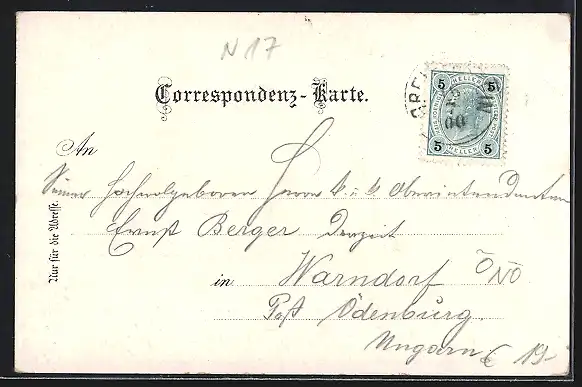 N 17
Correspondenz-Karte.
5 HELLER 5
00
5 HELLER 5
An
Seiner Hochwolgeboren Herrn k. u. k. Oberintendanten
Ernst Berger Derzeit
in Warndorf ÖNO
Post Ödenburg.
Ungarn
Nur für die Adresse.
19-